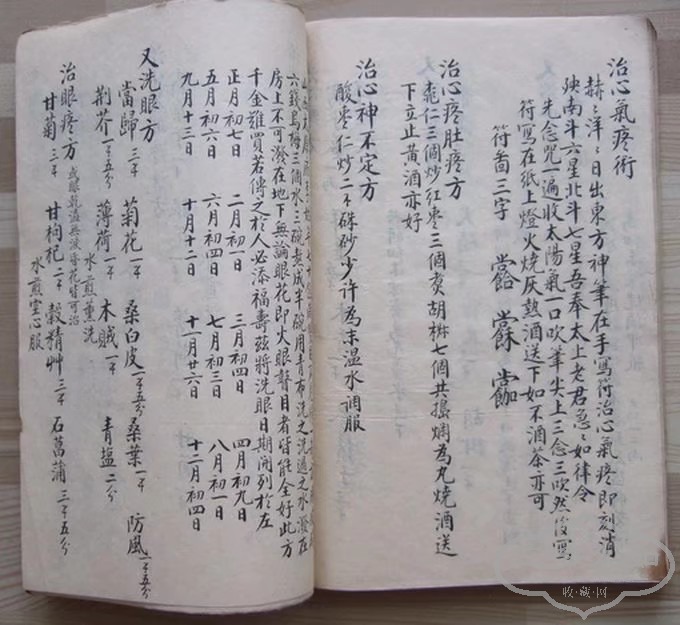 治心气疼術
赫〻洋〻日出東方神筆在手寫符治心氣疼即刻消
殃南斗六星北斗七星吾奉太上老君急〻如律令
先念咒一遍收太陽氣一口吹筆尖上三念三吹然後寫
符寫在紙上燈火燒灰熱酒送下如不酒茶亦可
符啚三字
治心疼肚疼方
桃仁三個炒紅棗三個煑胡椒七個共搗爛為丸燒酒送
下立止黃酒亦好
治心神不定方
酸枣仁炒二个硃砂少许為末温水調服
六錢烏梅三個水三碗煑成半碗用青布洗之洗過之水潑在
房上不可潑在地下無論眼花即火眼瞽目者皆能全好此方
千金难買若傳之於人必添福壽兹將洗眼日期開列於左
正月初七日 二月初一日 三月初四日 四月初九日
五月初六日 六月初四日 七月初三日 八月初一日
九月十三日 十月十二日 十一月廿六日 十二月初四日
又洗眼方
當歸三个 菊花一个 桑白皮一个五分 桑葉一个 防風一个五分
荆芥一个五分 薄荷一个 木賊一个 青盐二分
水煎薰洗
治眼疼方 皆可治
甘菊三个 甘枸杞二个 穀精艸三个 石菖蒲三个五分
水煎空心服
收·藏·网